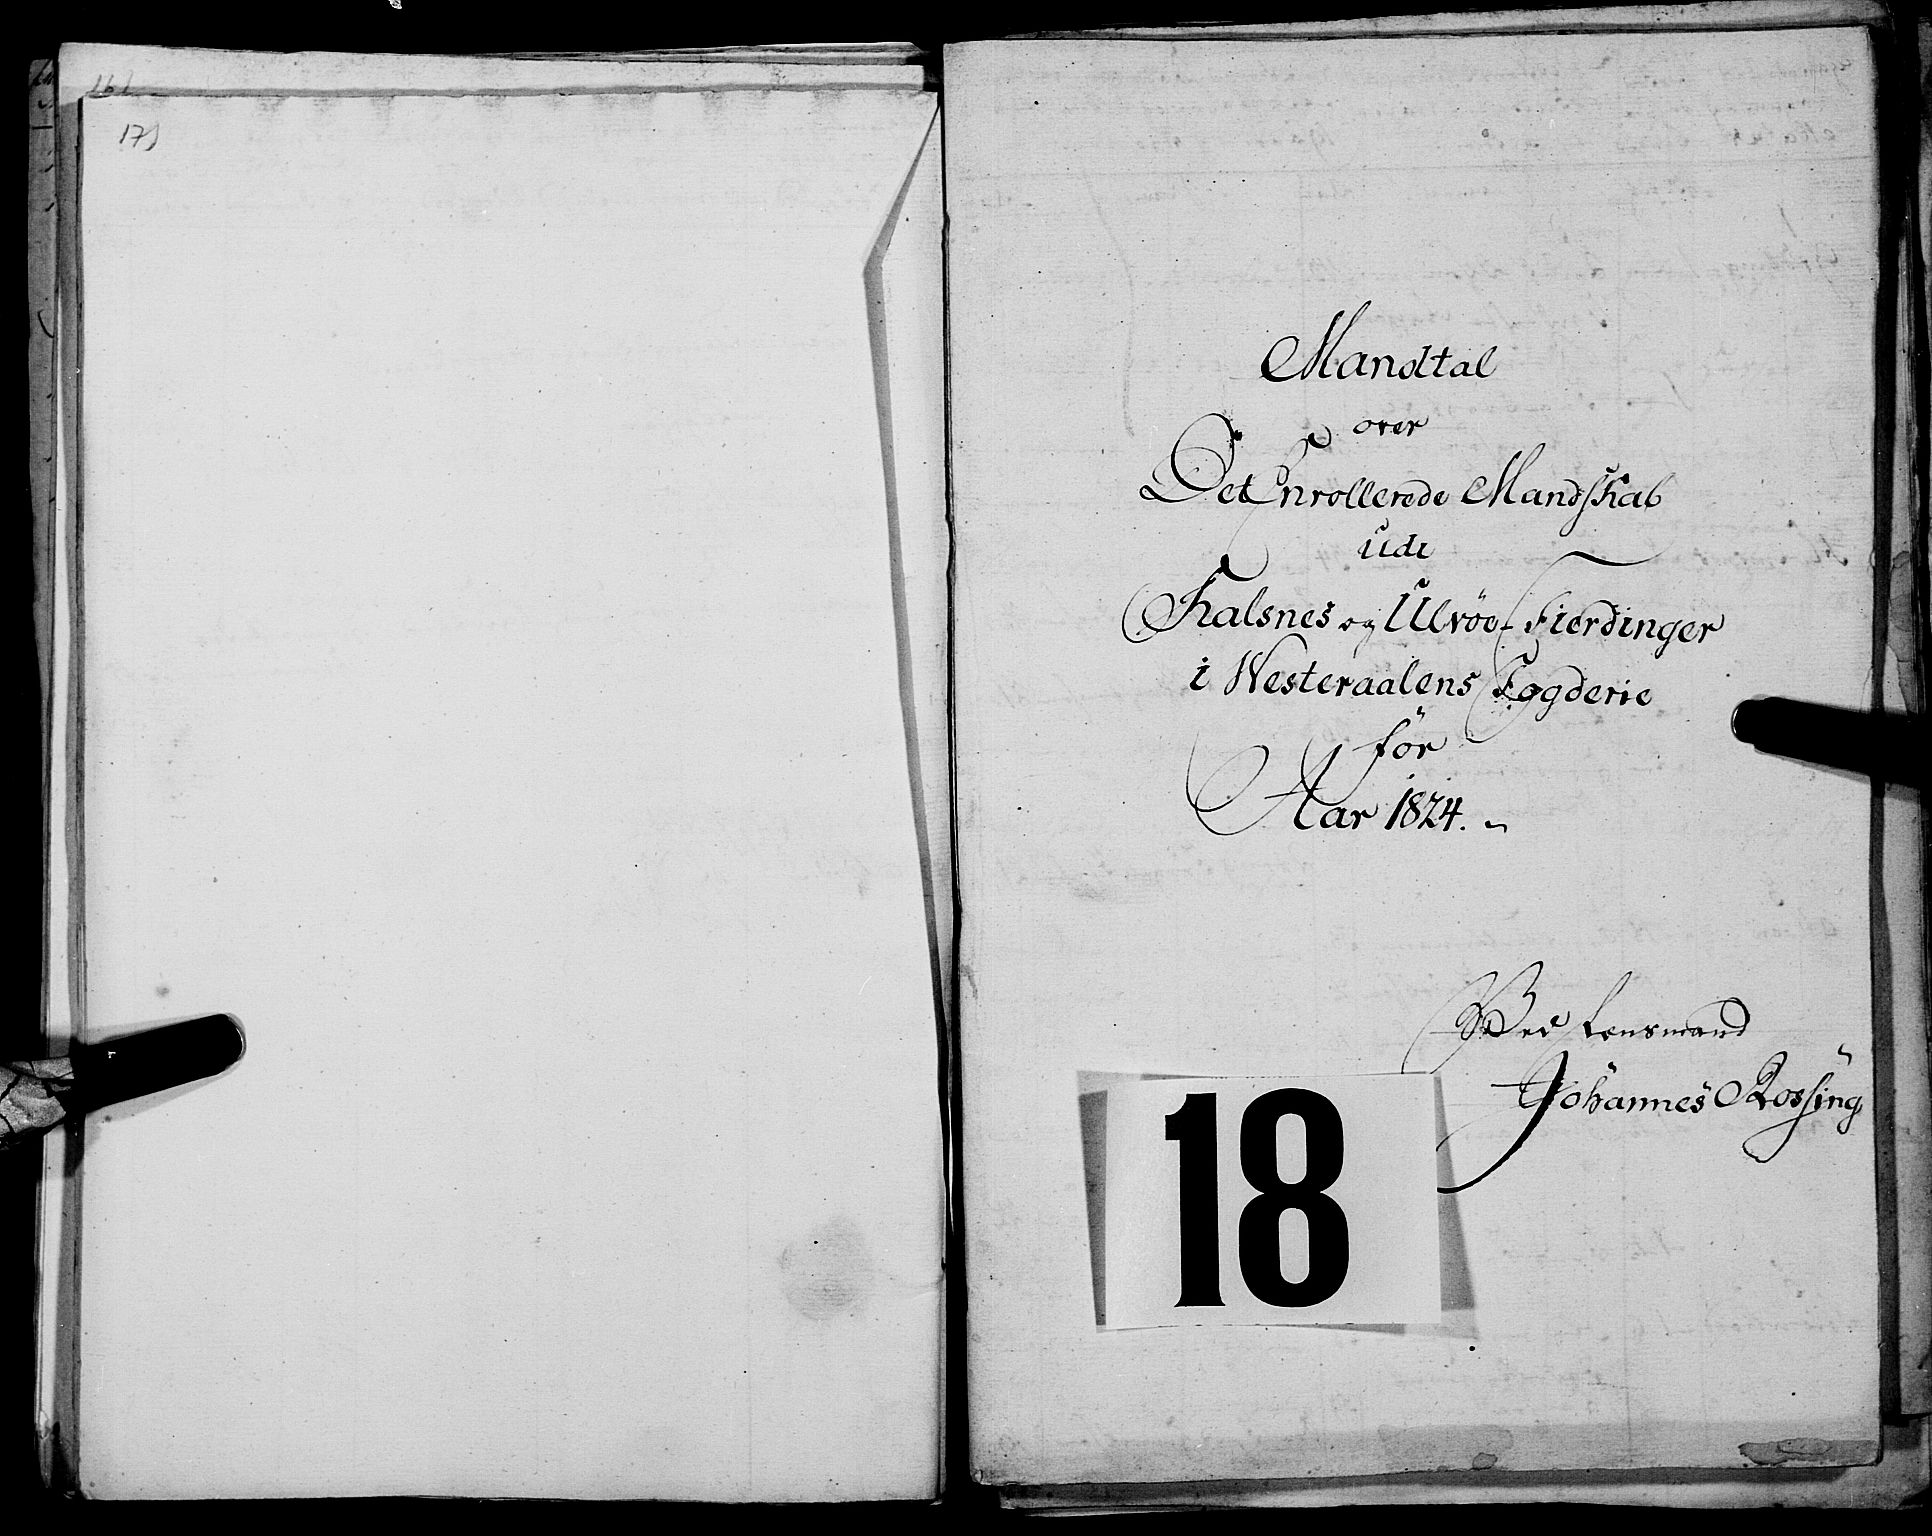 161
179
Mandtal
over
Det Enrollerede Mandskab
udi
Kalsnes og Ulvöe Fierdinger
i Westeraalens Fogderie
för
Aar 1824.
Ved Lensmand
Johannes Rossing
18